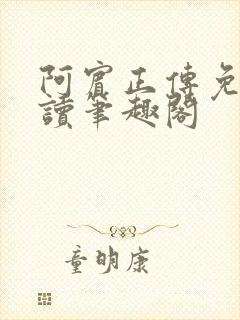 阿賓正傳免
讀筆趣閣
童明康